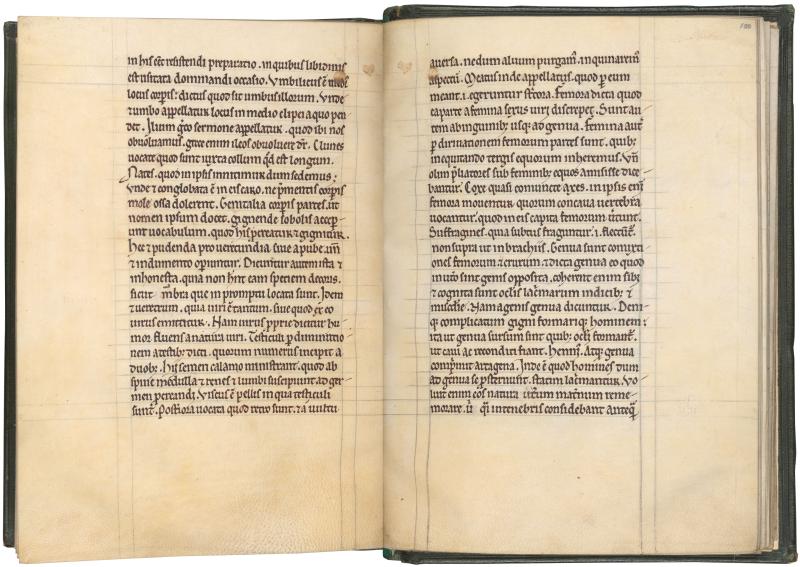 in his ē resistendi preparatio. in quibus libidinis
est usitata dommandi occasio. Vmbilicus ē medi
locus corpis. dictus quod sit umbus illorum. Vnde
& umbo appellatur locus in medio clipei a quo pen
det. Ilium gͦco sermone appellatur. quod ibi nos
obuoluamus. grece enim ileos obuoluere dr̄. Clunes
uocate quod sunt iuxta collum qd̄ est longum.
Nates. quod in ipsis innitimur dum sedemus.
Vnde & conglobata ē in eis caro. ne p̄mentis corpis
mole ossa dolerent. Genitalia corpis partes. ut
nomen ipsum docet. gignende sobolis accep
unt uocabulum. quod his pereatur & gignitur.
Hec & pudenda pro uerecundia siue a pube. un̄
& indumento opiuntur. Dicuntur autem ista &
inhonesta. quia non hnt eam speciem decoris.
sicut mbra que in promptu locata sunt. Idem
& ueretrum. quia uiri ē tantum. siue quod ex eo
uirus emittitur. Nam uirus pprie dicitur hu
mor fluens a natura uiri. Testiculi p diminutio
nem a testib; dicti. quorum numerus incipit a
duob; Hii semen calamo ministrant. quod ab
spine medulla & renes & lumbi suscipiunt ad ger
men perandi. Viscus ē pellis in qua testiculi
sunt. Posteriora uocata quod retro sunt. & a uultu
100
auersa. ne dum aluum purgam̄. inquinarem̄
aspectū. Meatus inde appellatus. quod p eum
meant. i. egeruntur stercora. Femora dicta quod
ea parte a femina sexus uiri discrepet. Sunt au
tem ab inguinib; usq; ad genua. Femina aut̄
p diriuationem femorum partes sunt. quib;
in equitando tergis equorum inheremus. Vn̄
olim pliatores sub feminib; equos amisisse dice
bantur. Coxe quasi comuncte axes. in ipsis eni
femora mouentur quorum concaua uertebra
uocantur. quod in eis capita femorum uertunt.
Suffragines. quia subtus franguntur. i. flectunt̄.
non supra ut in brachiis. Genua sunt comixti
ones femorum & crurum. & dicta genua eo quod
in utero sint genis opposita. coherent enim sibi
& cognita sunt oclis lacrimarum indicib; &
miscdie. Nam a genis genua dicuntur. Deni
q; complicatum gigni formariq; hominem.
ita ut genua sursum sint quib; ocli formant̄.
ut caui ac reconditi fiant. Henni. Atq; genua
comprimit artagena. Inde ē quod homines dum
ad genua se psternunt. statim lacrimantur. Vo
luit enim eos natura uterum maternum reme
morare. u quasi in tenebris considebant anteq̄